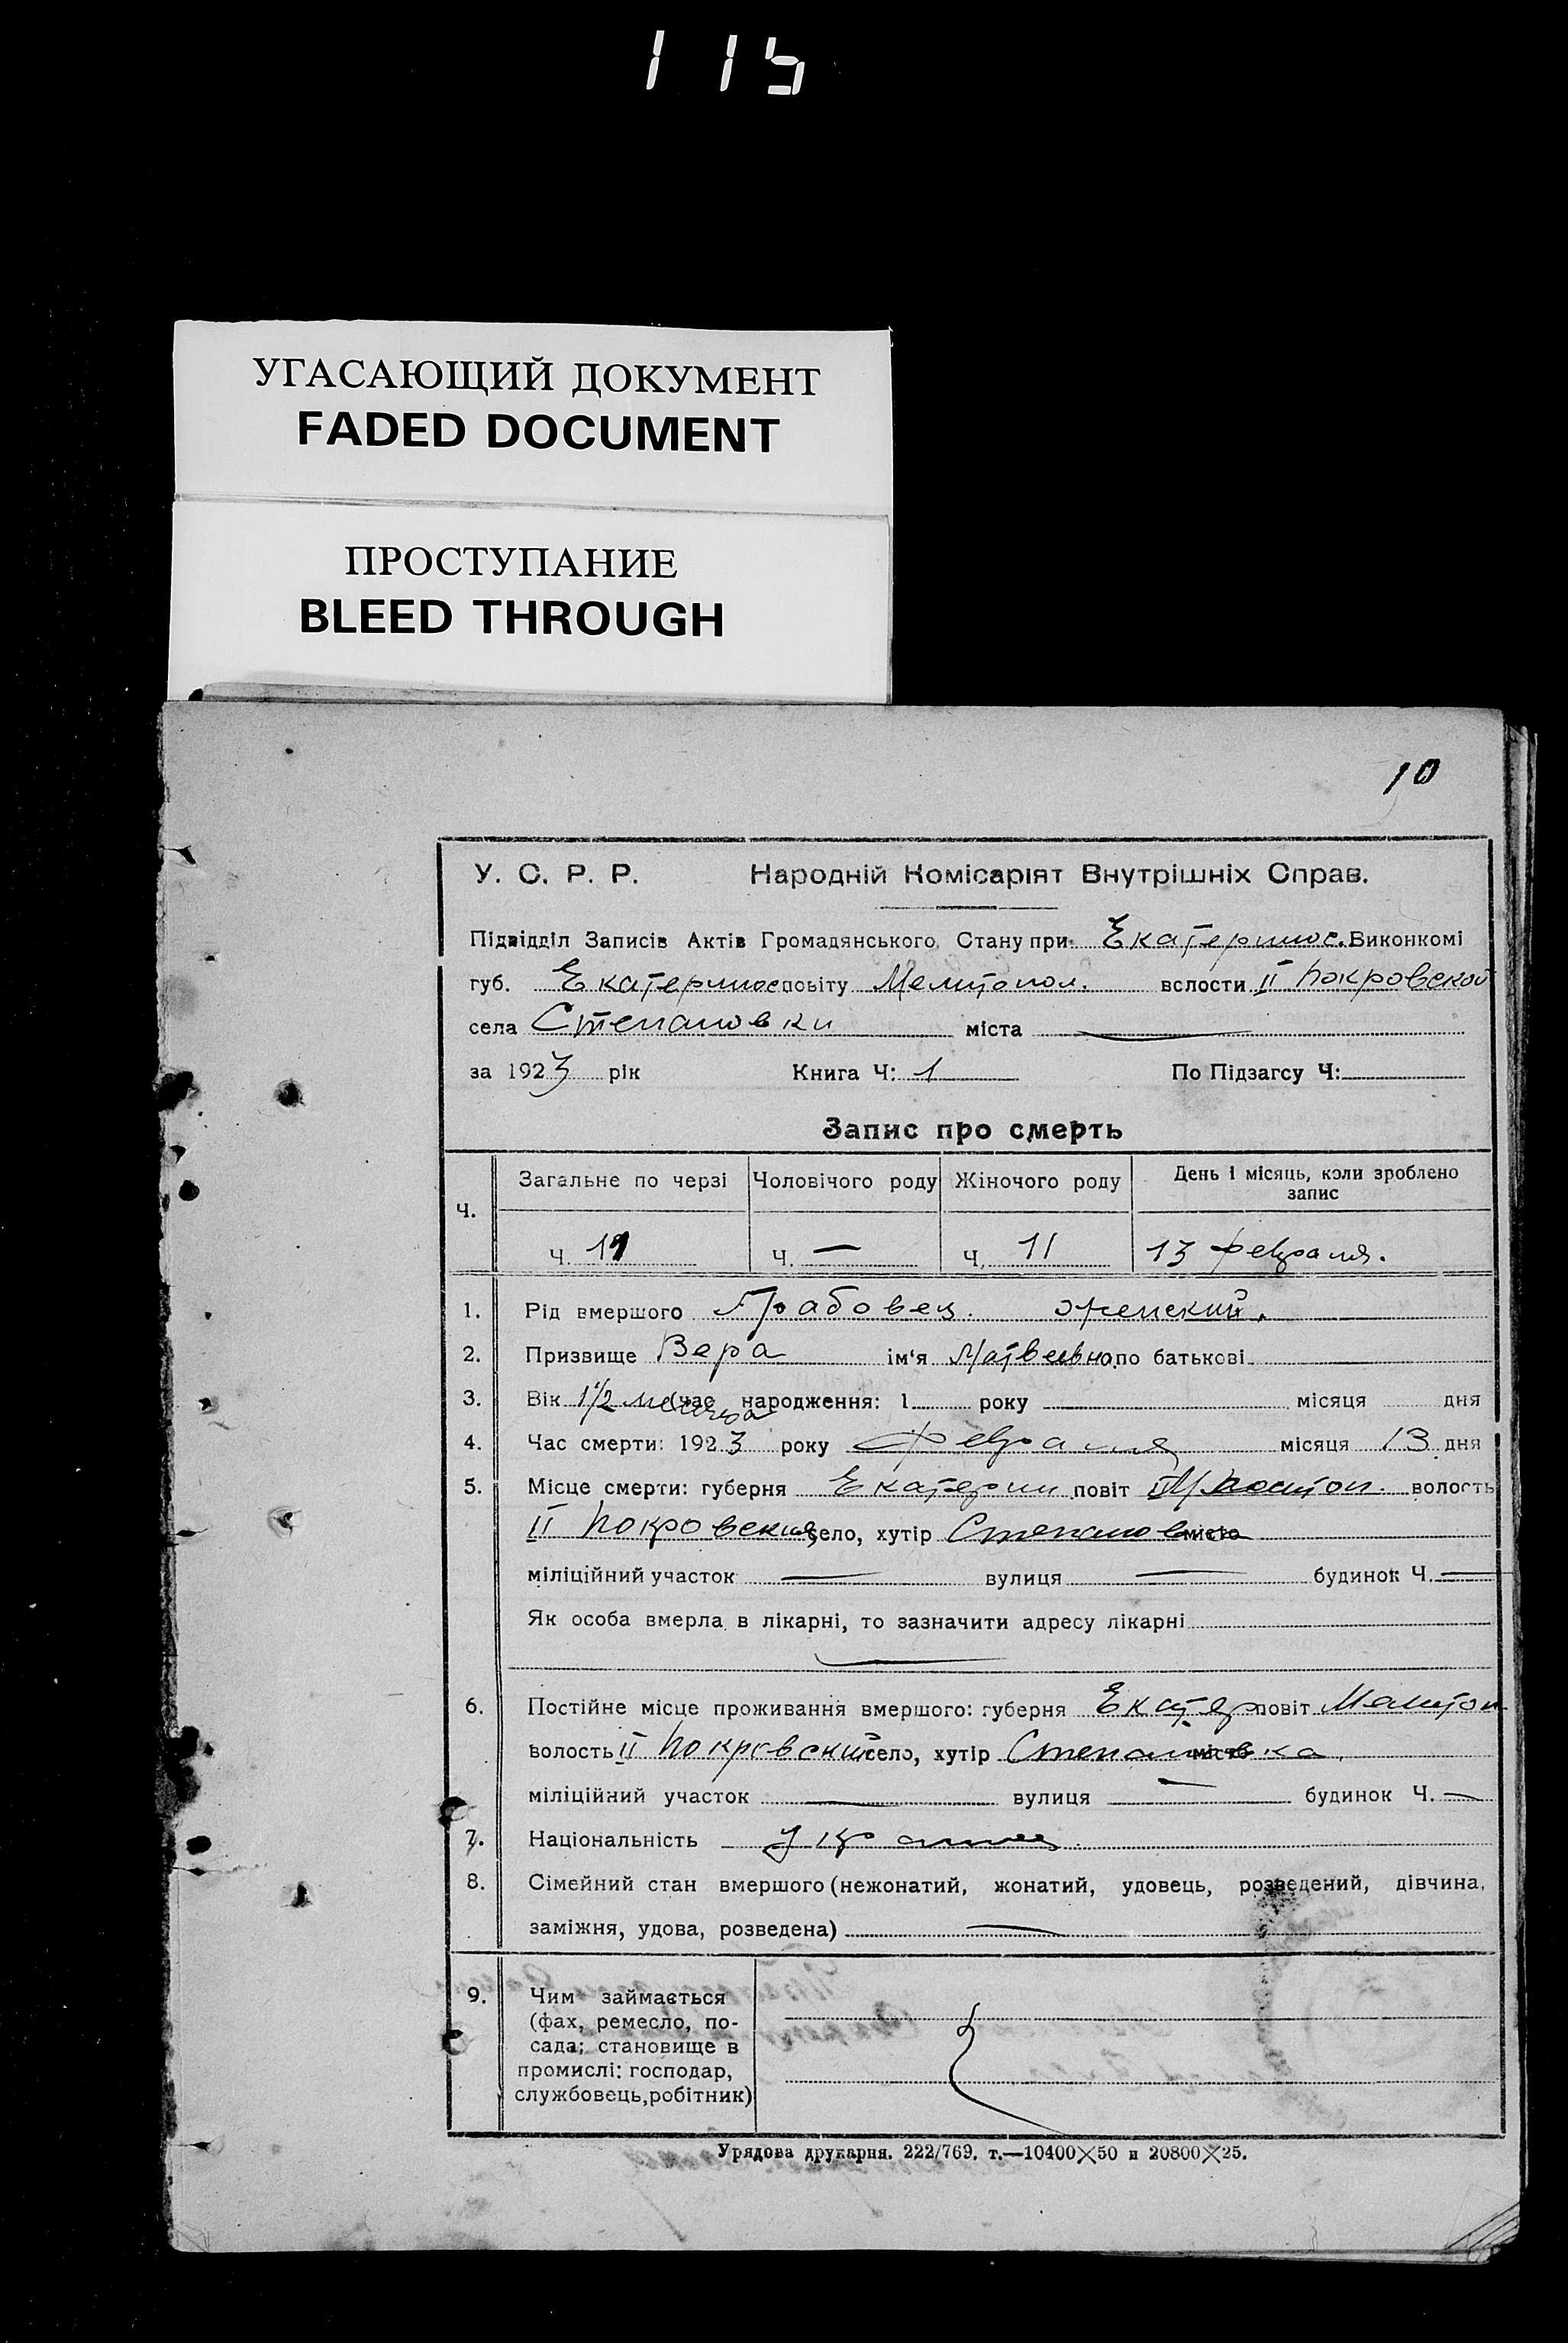 115
УГАСАЮЩИЙ ДОКУМЕНТ
FADED DOCUMENT
ПРОСТУПАНИЕ
BLEED THROUGH
10
У. С. Р. Р. Народній Комісаріят Внутрішніх Справ.
Підвідділ Записів Актів Громадянського Стану при Екатеринос. Виконкомі
губ. Екатеринос повіту Мелитопол. волости II Покровской
села Степановки міста —
за 1923 рік Книга Ч: 1 По Підзагсу Ч:
Запис про смерть
Ч. Загальне по черзі Чоловічого роду Жіночого роду День і місяць, коли зроблено запис
Ч. 11 Ч. — Ч. 11 13 февраля.
1. Рід вмершого Грабовец. женский.
2. Призвище Вера ім'я Матвеевна по батькові
3. Вік 1 1/2 месяца час народження: 1 року місяця дня
4. Час смерти: 1923 року февраля місяця 13 дня
5. Місце смерти: губерня Екатерин повіт Мелитоп. волость
II Покровския село, хутір Степановка місто
міліційний участок — вулиця — будинок Ч. —
Як особа вмерла в лікарні, то зазначити адресу лікарні
—
6. Постійне місце проживання вмершого: губерня Екатер повіт Мелитоп
волость II Покровский село, хутір Степановка. місто
міліційний участок — вулиця — будинок Ч. —
7. Національність
8. Сімейний стан вмершого (нежонатий, жонатий, удовець, розведений, дівчина,
заміжня, удова, розведена) —
9. Чим займається
(фах, ремесло, по-
сада; становище в
промислі: господар,
службовець, робітник)
Урядова друкарня. 222/769. т.—10400×50 и 20800×25.